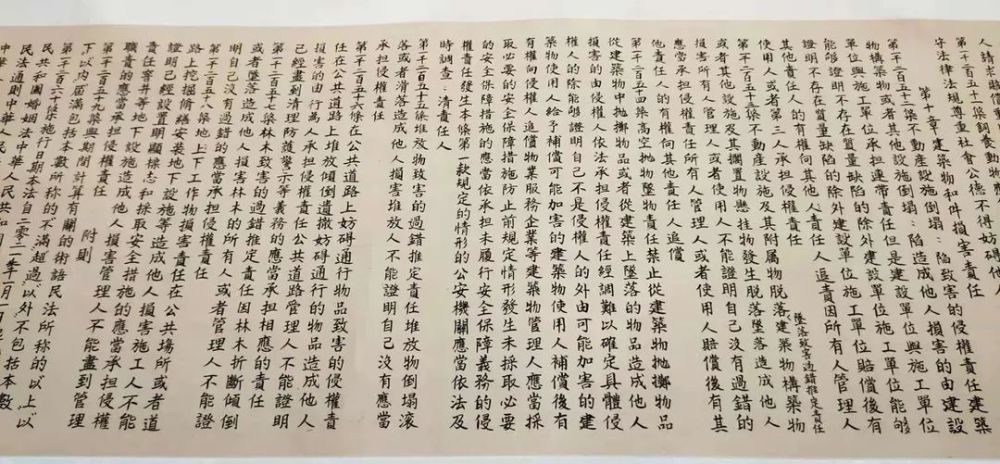 人請求賠償
第一千二百五十一條飼養動物
守法律法規尊重社會公德不得妨碍他人
第十章建築物和物件損害責任
第一千二百五十二條不動產設施倒塌陷致害的侵權責任建築
物構築物或者其他設施倒塌陷造成他人損害的由建設
單位與施工單位承担連帶責任但是建設單位與施工單位
能够證明不存在質量缺陷的除外建設單位施工單位賠償後有
其他責任人的有權向其他責任人追償因所有人管理人
使用人或者第三人承担侵權責任
第一千二百五十三條不動產設施及其附属物脱落
墜落致害過錯推定責任
建築物構築物
或者其他設施及其擱置物懸挂物發生脱落墜落造成他人
損害所有人管理人或者使用人不能證明自己没有過錯的
應當承担侵權責任所有人管理人或者使用人賠償後有其
他責任人的有權向其他責任人追償
第一千二百五十四條高空抛物墜物責任禁止從建築物抛擲物品
從建築物中抛擲物品或者從建築上墜落的物品造成他人
損害的由侵權人依法承担侵權責任經調難以確定具體侵
權人的除能够證明自己不是侵權人的外由可能加害的建
築物使用人給予補償可能加害的建築物使用人補償後有
有權向侵權人追償物業服務企業等建築物管理人應當採
取必要的安全保障措施防止前規定情形發生未採取必要
的安全保障措施的應當依承担未履行安全保障義務的侵
權責任發生本條第一款規定的情形的公安機關應當依法及
時調查清責任人
第一千二百五十五條堆放物致害的過錯推定責任堆放物倒塌滚
落或者滑落造成他人損害堆放人不能證明自己没有過錯應當
承担侵權責任
第一千二百五十六條在公共道路上妨碍通行物品致害的侵權責
任在公共道路上堆放傾倒遺撒妨碍通行的物品造成他人
損害的由行為人承担侵權責任公共道路管理人不能證明
已經盡到清理防護警示等義務的應當承担相應的責任
第一千二百五十七條林木致害的過錯推定責任因林木折斷傾倒
或者墜落造成他人損害林木的所有人或者管理人不能證
明自己没有過錯的應當承担侵權責任
第一千二百五十八條地上下工作物損害責任在公共場所或者道
路上挖掘修繕安裝地下設施等造成他人損害施工人不能
證明已經設置明顯標志和採取安全措施的應當承担侵權
責任窨井等地下設施造成他人損害管理人不能盡到管理
職責的應當承担侵權責任
附則
第一千二百五十九條與期間計算有關的術語民法所稱的以上以
下以内屆滿包括本數所稱的不滿超過以外不包括本數
第一千二百六十條施行日期本法自二零二一年一月一日
民共和國婚姻法中華人民共和國
民法通則中華人民